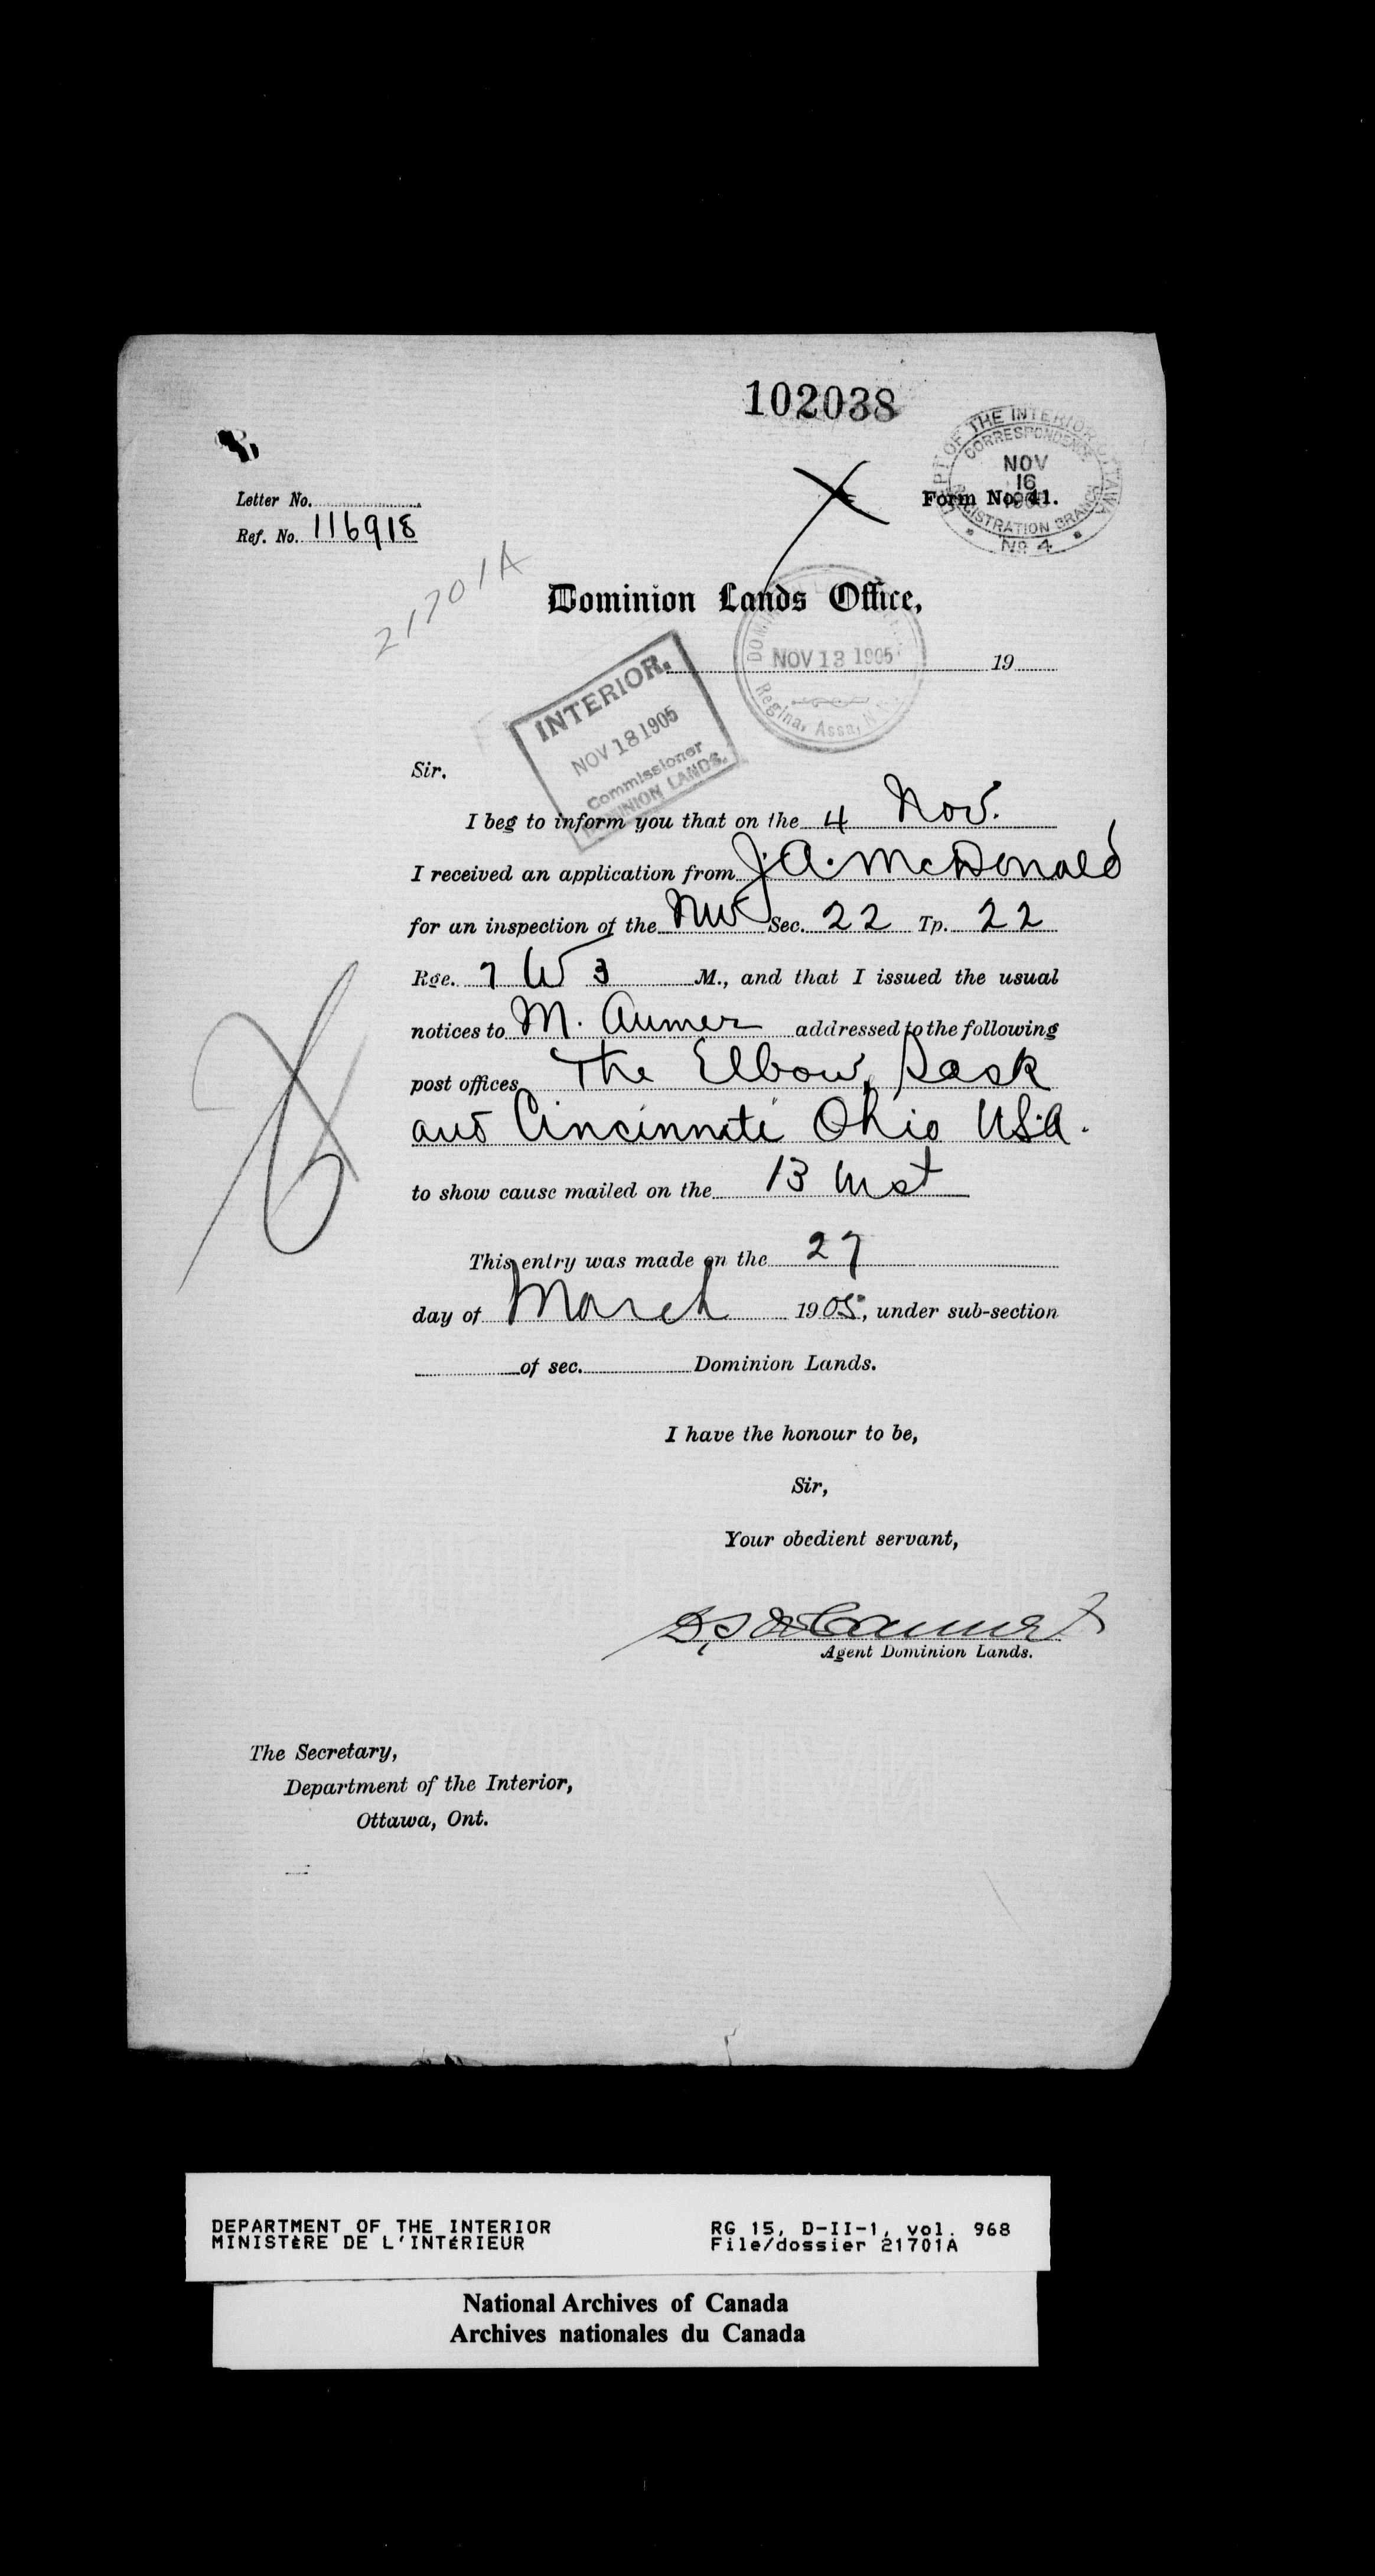 102038
DEPT OF THE INTERIOR OTTAWA
CORRESPONDENCE
NOV
16
1905
REGISTRATION BRANCH
No 4
Letter No.
Form No. 41.
Ref. No. 116918
21701A
Dominion Lands Office,
NOV 13 1905
Regina, Assa,
19
INTERIOR.
NOV 18 1905
Commissioner
DOMINION LANDS.
Sir.
I beg to inform you that on the 4 Nov.
I received an application from J.A. McDonald
for an inspection of the NW Sec. 22 Tp. 22
Rge. 7 W 3 M., and that I issued the usual
notices to M. Aumer addressed to the following
post offices The Elbow, Sask
and Cincinnati Ohio USA.
to show cause mailed on the 13 inst
This entry was made on the 27
day of March 1905, under sub-section
of sec. Dominion Lands.
I have the honour to be,
Sir,
Your obedient servant,
Agent Dominion Lands.
The Secretary,
Department of the Interior,
Ottawa, Ont.
DEPARTMENT OF THE INTERIOR
MINISTÈRE DE L'INTÉRIEUR
RG 15, D-II-1, vol. 968
File/dossier 21701A
National Archives of Canada
Archives nationales du Canada